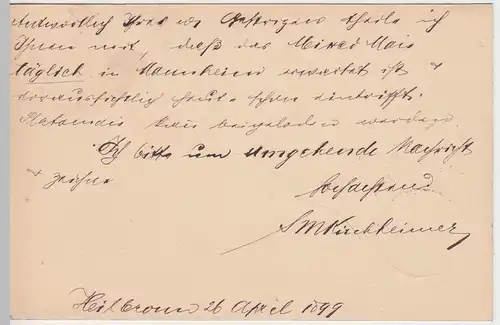 Antwortlich Ihres vom Gestrigen theile ich
Ihnen mit, daß der Mixed Mais
täglich in Mannheim erwartet ist &
voraussichtlich heute schon eintrifft.
kann beigeladen werden.
Ich bitte um umgehende Nachricht
& zeichne
Hochachtend
SMKirchheimer
Heilbronn 26 April 1899